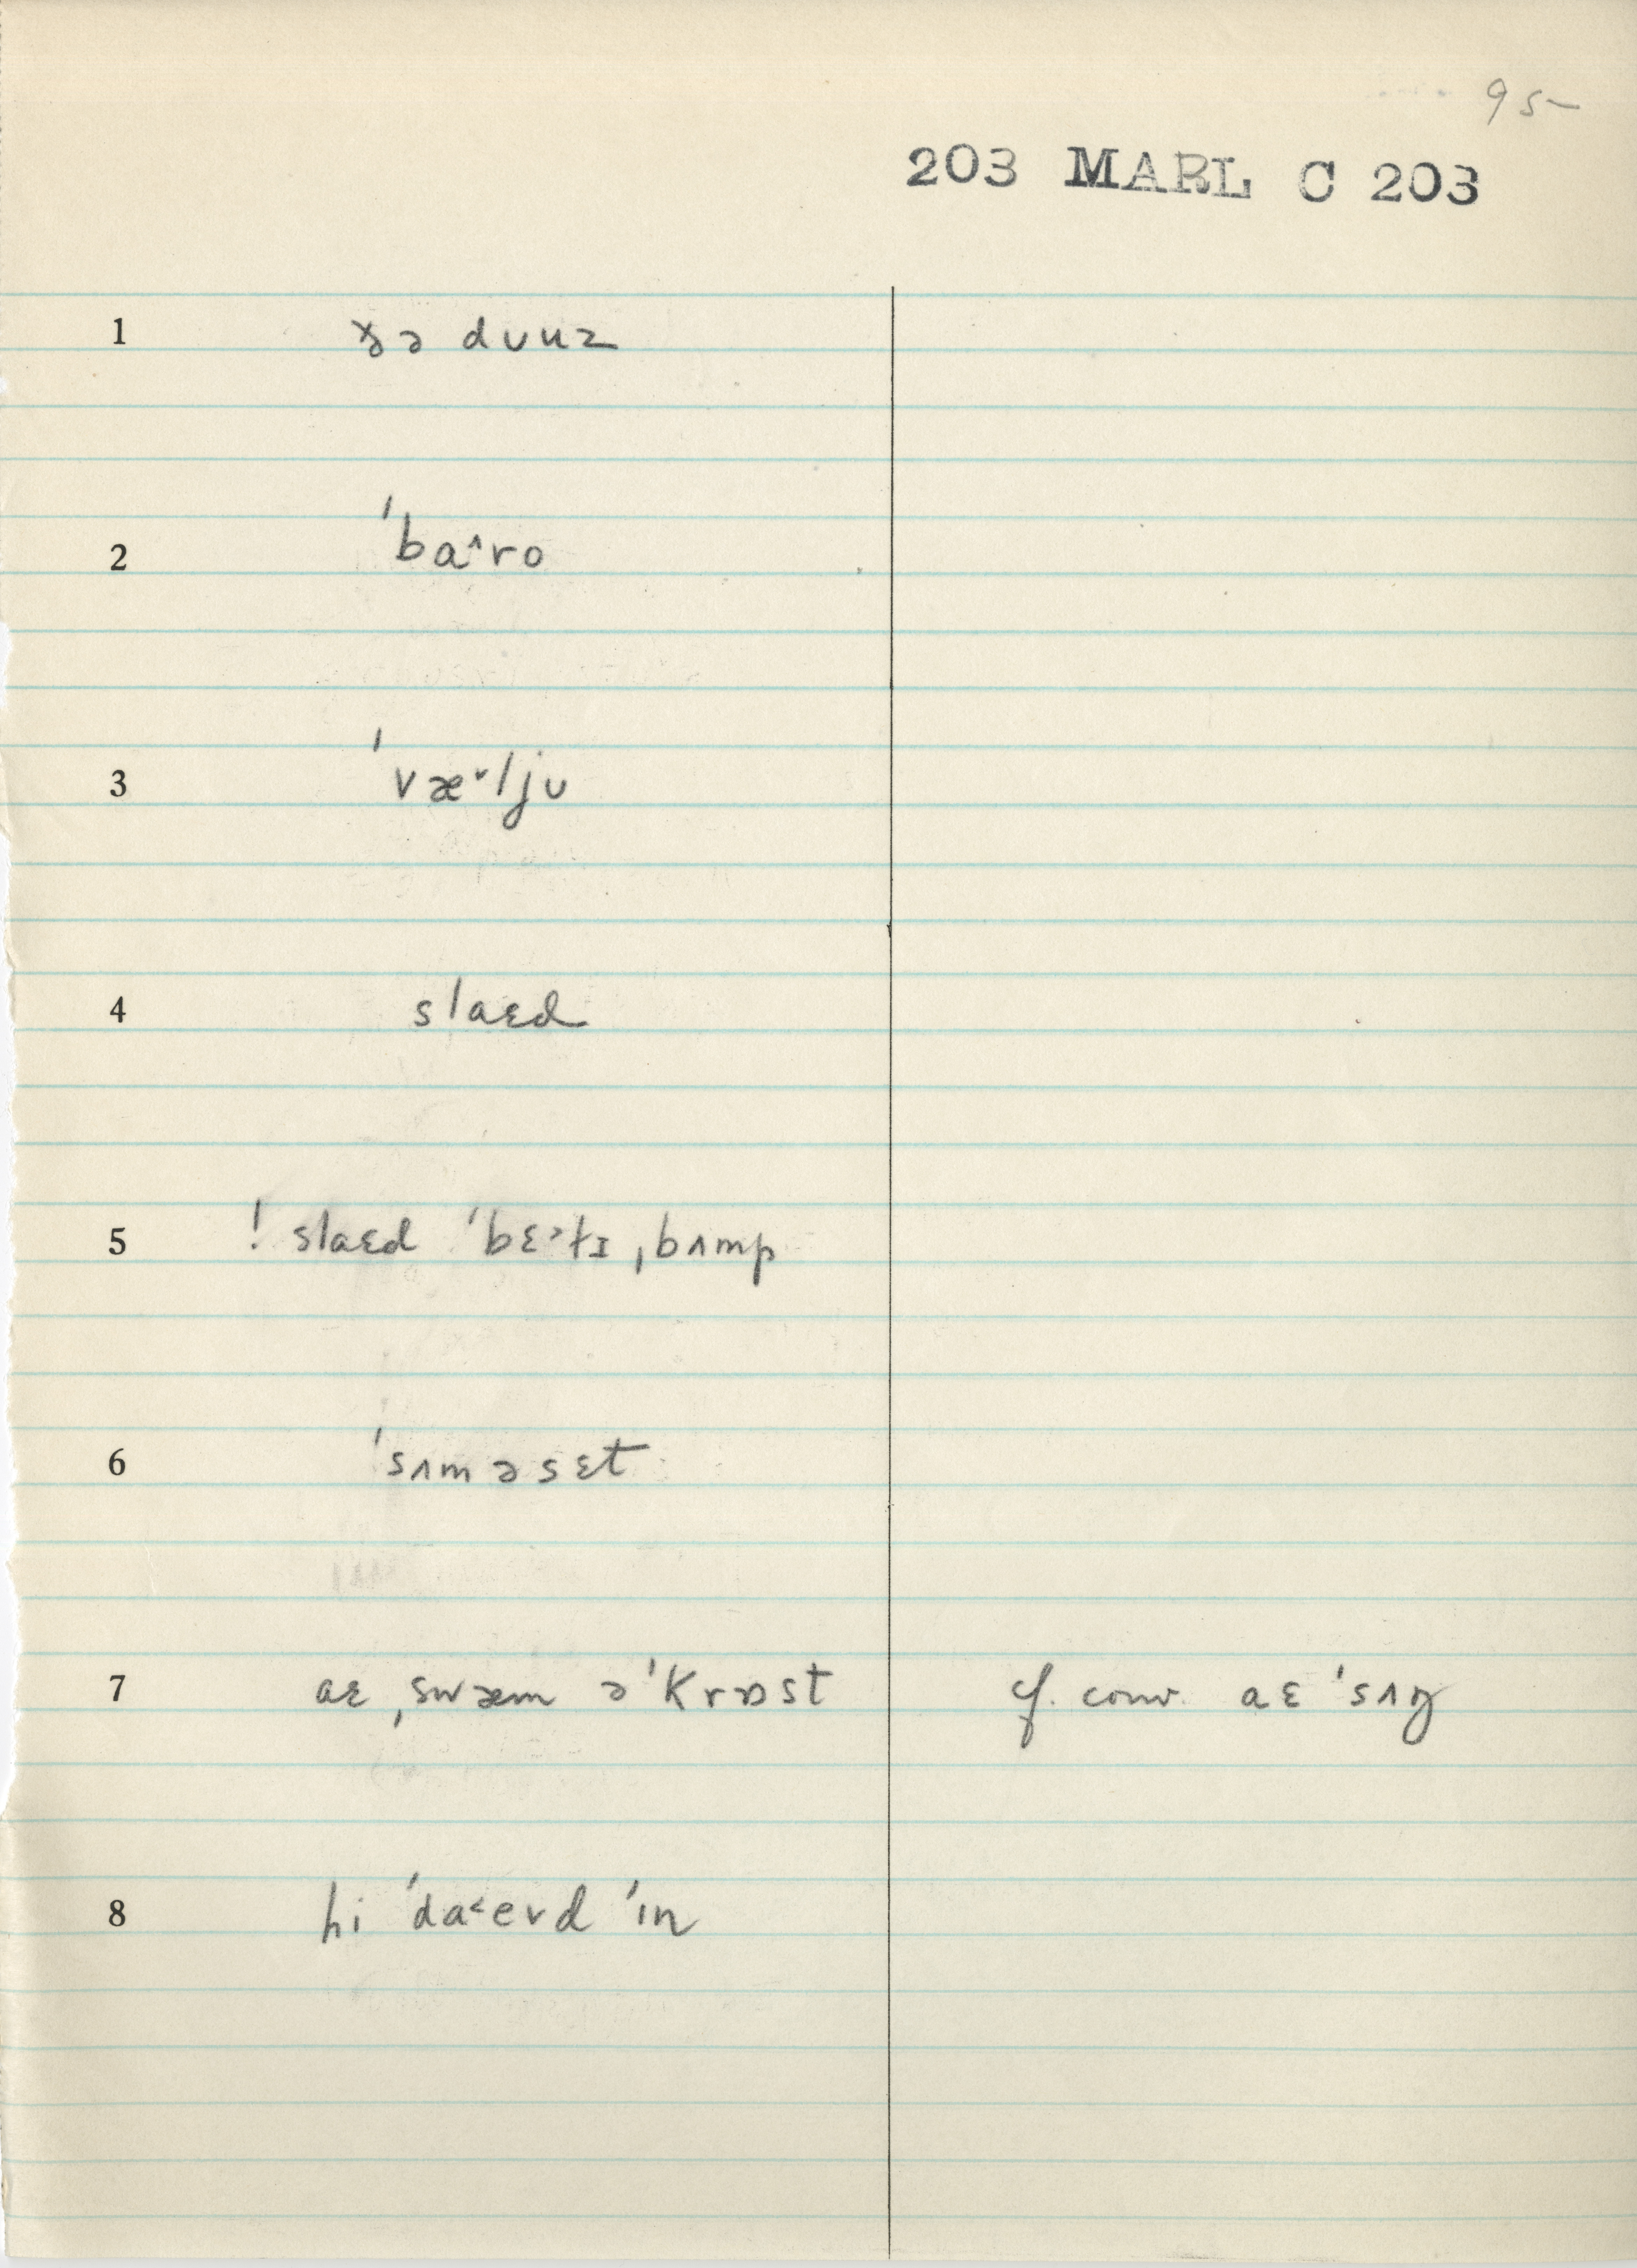 95
203 MARL C 203
1 ðə dʊuz
2 ˈba^ro
3 ˈvæ˅ljʊ
4 slaɛd
5 ! slaɛd ˈbɛ˃t̬ɪ ˌbʌmp
6 ˈsʌməsɛt
7 aɛ ˌswæm əˈkrɒst cf. conv. aɛ ˈsʌŋ
8 hi ˈda˂evd ˈɪn